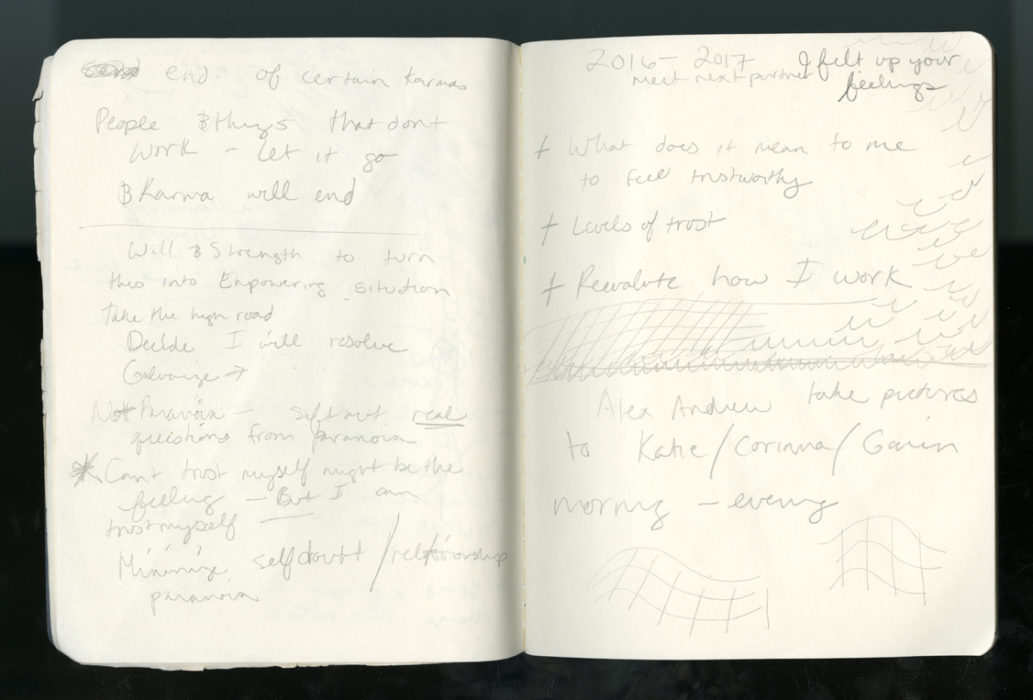 end of certain Karmas
People & things that dont
work - let it go
& Karma will end
Will & Strength to turn
this into Empowering situation
take the high road
Decide I will resolve
Galvanize →
Not Paranoia - sift out real
questions from paranoia
* Cant trust myself might be the
feeling - But I can
trust myself
Minimize selfdoubt / relationship
paranoia
2016 - 2017 I felt up your
meet next partner feelings
+ What does it mean to me
to feel trustworthy
+ Levels of trust
+ Reevalute how I work
Alex Andrew take pictures
to Katie / Corinna / Gavin
morning - evening